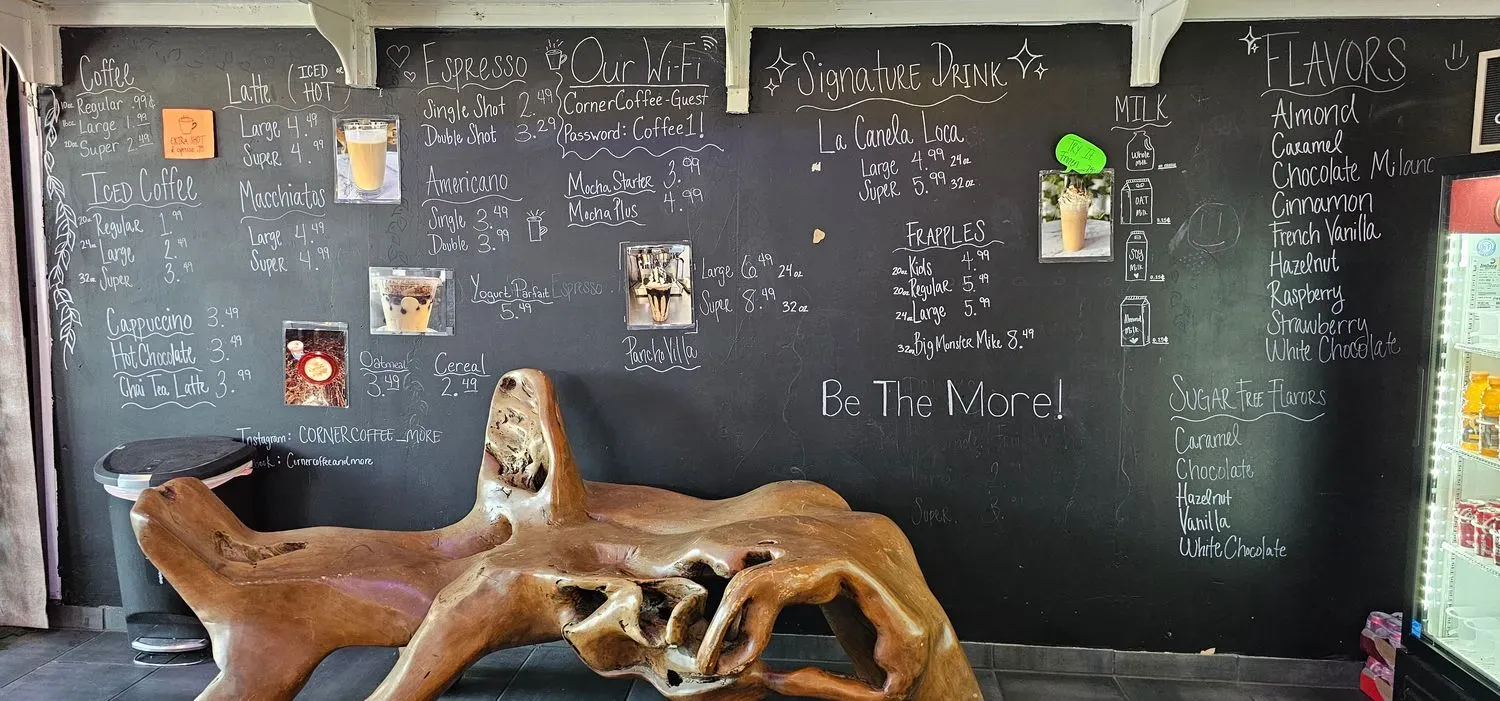 Coffee
10oz Regular .99¢
16oz Large 1.99
20oz Super 2.49
EXTRA SHOT
Iced Coffee
20oz Regular 1.99
24oz Large 2.49
32oz Super 3.49
Cappuccino 3.49
Hot Chocolate 3.49
Chai Tea Latte 3.99
Latte (ICED or HOT)
Large 4.49
Super 4.99
Macchiatos
Large 4.49
Super 4.99
Oatmeal 3.49
Cereal 2.49
Instagram: CORNERCOFFEE_MORE
ook: Cornercoffeeandmore
Espresso
Single Shot 2.49
Double Shot 3.29
Americano
Single 3.49
Double 3.99
Yogurt Parfait Espresso
5.49
Our Wi-Fi
CornerCoffee-Guest
Password: Coffee1!
Mocha Starter 3.99
Mocha Plus 4.99
Large 6.49 24oz
Super 8.49 32oz
Pancho Villa
Signature Drink
La Canela Loca
Large 4.99 24oz
Super 5.99 32oz
TRY IT
Frozen
FRAPPLES
Kids 4.99
20oz Regular 5.49
24oz Large 5.99
32oz Big Monster Mike 8.49
Be The More!
Super. 3.
MILK
Whole Milk
OAT MILK
SOY MILK
Almond Milk
FLAVORS
Almond
Caramel
Chocolate Milano
Cinnamon
French Vanilla
Hazelnut
Raspberry
Strawberry
White Chocolate
Sugar Free Flavors
Caramel
Chocolate
Hazelnut
Vanilla
White Chocolate